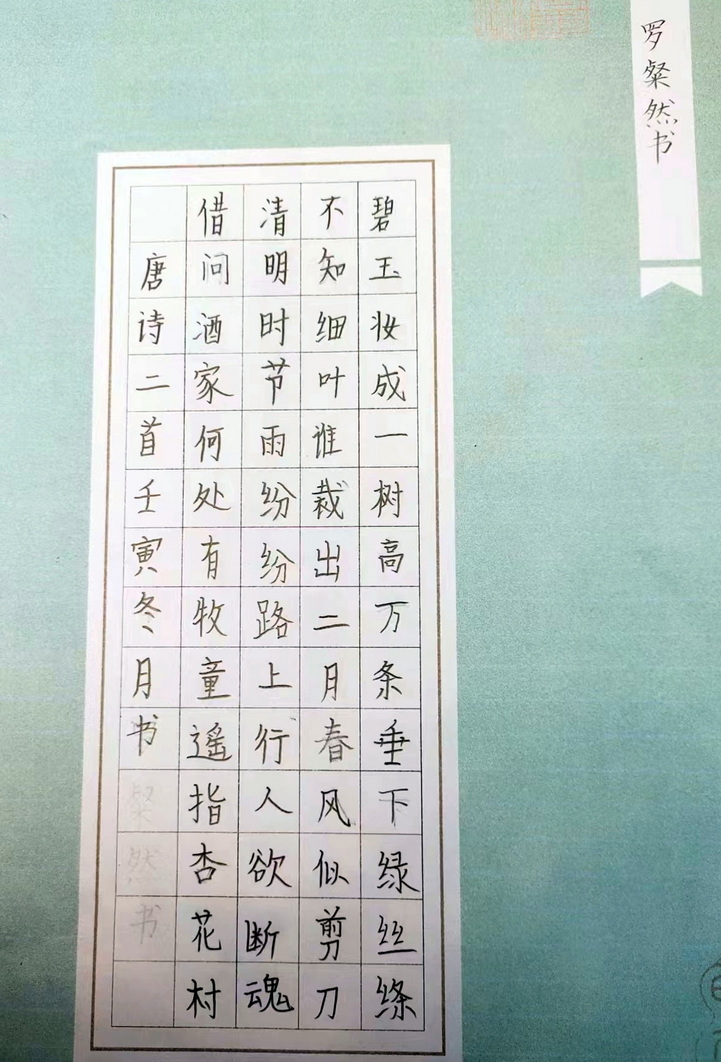 罗粲然书
碧玉妆成一树高万条垂下绿丝绦
不知细叶谁裁出二月春风似剪刀
清明时节雨纷纷路上行人欲断魂
借问酒家何处有牧童遥指杏花村
唐诗二首壬寅冬月书粲然书